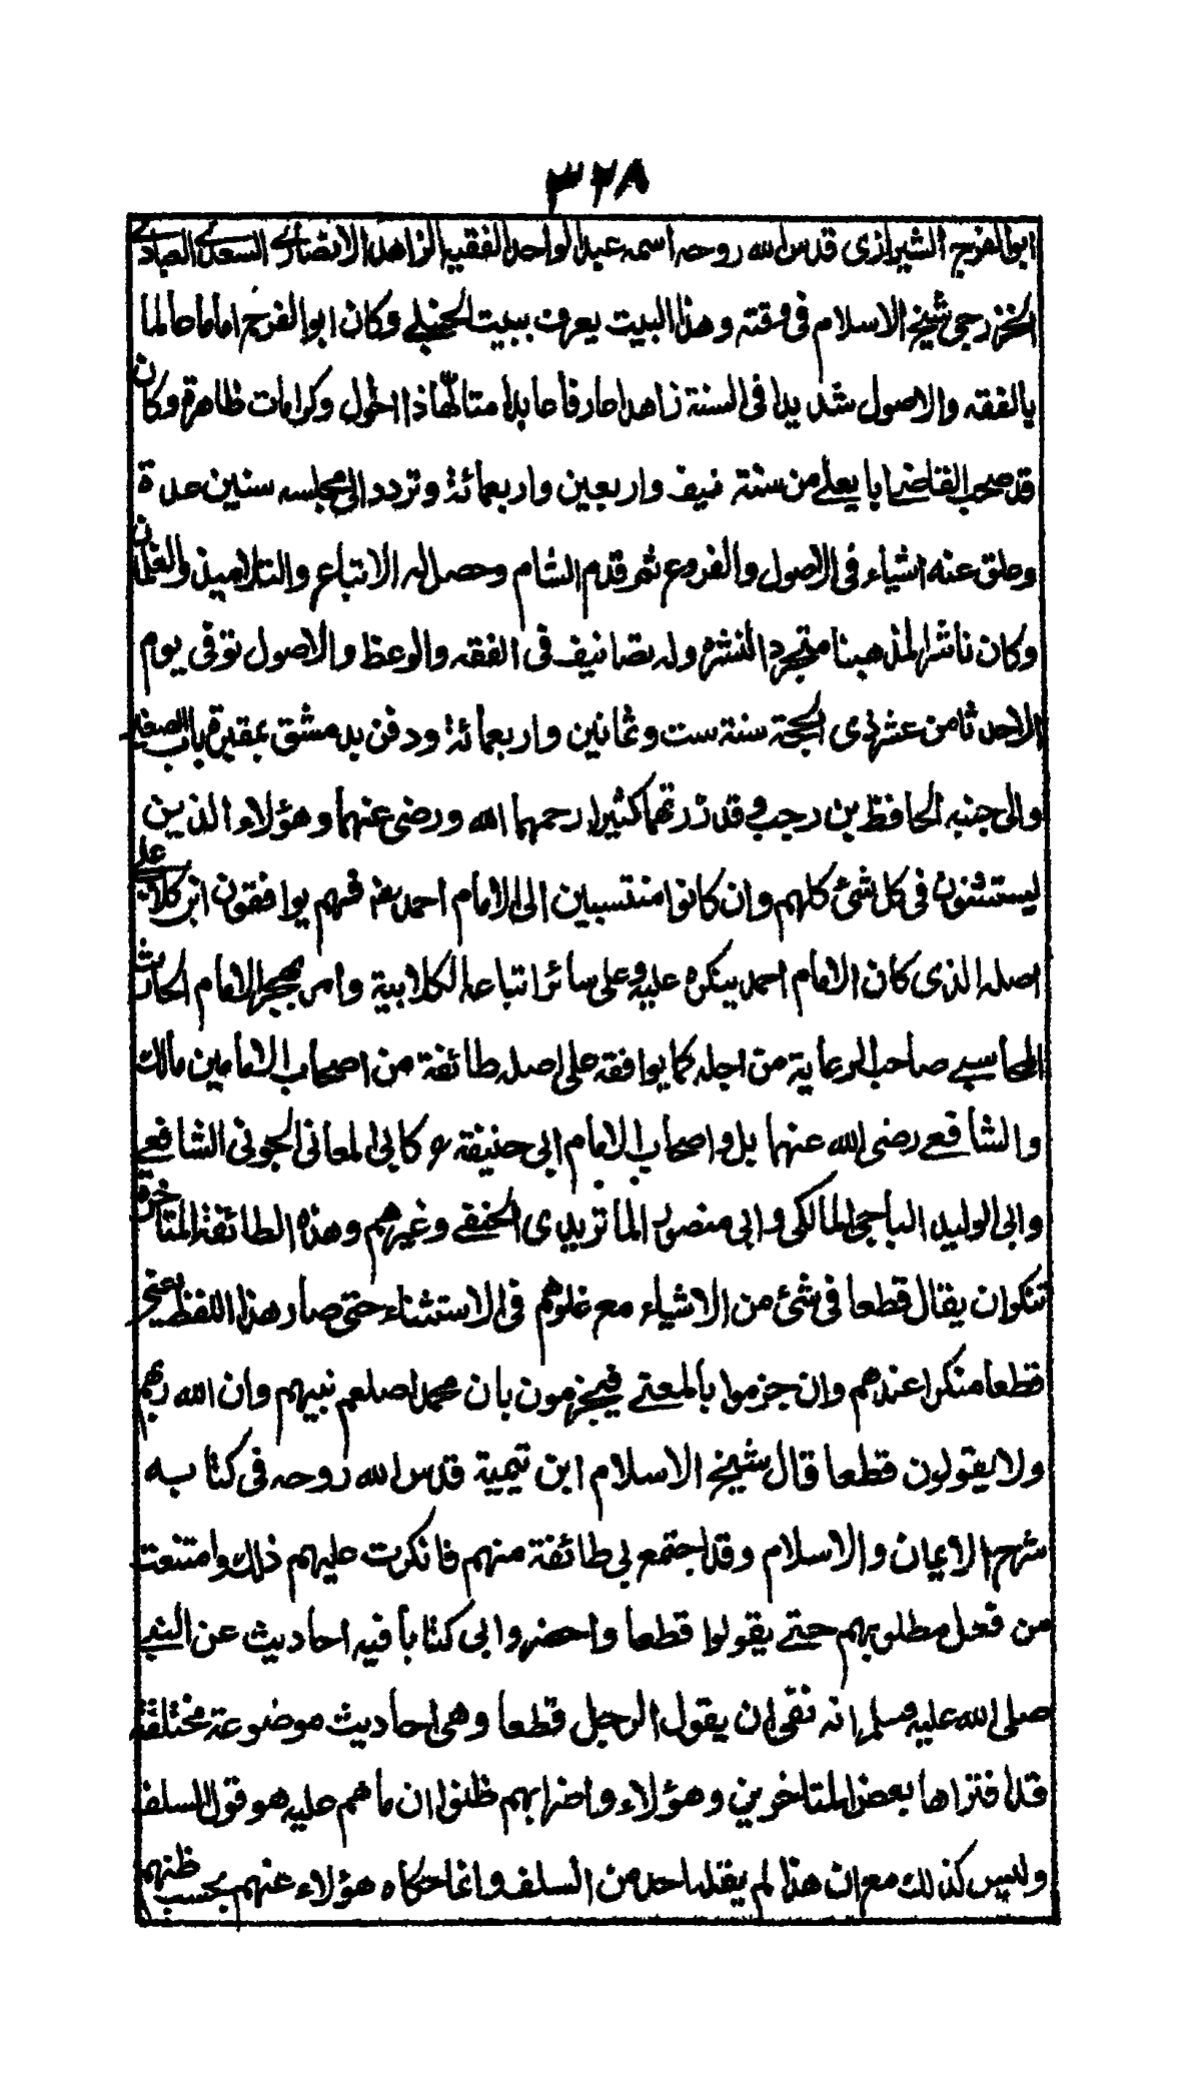 ٣٢٨
ابو الفرج الشيرازى قدس الله روحه اسمه عبد الواحد الفقيه الزاهد الانصارى السعدى العبادى
الخزرجى شيخ الاسلام فى وقته وهذا البيت يعرف ببيت الحنبلى وكان ابو الفرج اماما عالما
بالفقه والاصول شديدا فى السنة زاهدا عارفا عابدا متالها ذا احوال وكرامات ظاهرة وكان
قد صحب القاضى ابا يعلى من سنة نيف واربعين واربعمائة وتردد الى مجلسه سنين عدة
وعلق عنه اشياء فى الاصول والفروع ثم قدم الشام وحصل له الاتباع والتلاميذ والغلمان
وكان ناشرا لمذهبنا متجردا لنشره وله تصانيف فى الفقه والوعظ والاصول توفى يوم
الاحد ثامن عشر ذى الحجة سنة ست وثمانين واربعمائة ودفن بدمشق بمقبرة باب الصغير
والى جنبه الحافظ بن رجب وقد زرتهما كثيرا رحمهما الله ورضى عنهما وهؤلاء الذين
يستثنون فى كل شئ كلهم وان كانوا منتسبين الى الامام احمد رضـ فهم يوافقون ابن كلاب على
اصله الذى كان الامام احمد ينكره عليه وعلى سائر اتباعه الكلابية وامر بهجر الامام الحارث
المحاسبى صاحب الرعاية من اجله كما يوافقه على اصله طائفة من اصحاب الامامين مالك
والشافعى رضى الله عنهما بل واصحاب الامام ابى حنيفة رح كابى المعانى الجونى الشافعى
وابى الوليد الباجى المالكى وابى منصور الماتريدى الحنفى وغيرهم وهذه الطائفة المتاخرة
تنكر ان يقال قطعا فى شئ من الاشياء مع غلوهم فى الاستثناء حتى صار هذا اللفظ يعنى
قطعا منكرا عندهم وان جزموا بالمعنى فيجزمون بان محمدا صلعم نبيهم وان الله ربهم
ولا يقولون قطعا قال شيخ الاسلام ابن تيمية قدس الله روحه فى كتابه
شرح الايمان والاسلام وقد اجتمع بى طائفة منهم فانكرت عليهم ذلك وامتنعت
من فعل مطلوبهم حتى يقولوا قطعا واحضروا بى كتابا فيه احاديث عن النبى
صلى الله عليه وسلم انه نفى ان يقول الرجل قطعا وهى احاديث موضوعة مختلقة
قد افتراها بعض المتاخرين وهؤلاء واضرابهم ظنوا ان ما هم عليه هو قول السلف
وليس كذلك مع ان هذا لم يقله احد من السلف وانما حكاه هؤلاء عنهم بحسب ظنهم